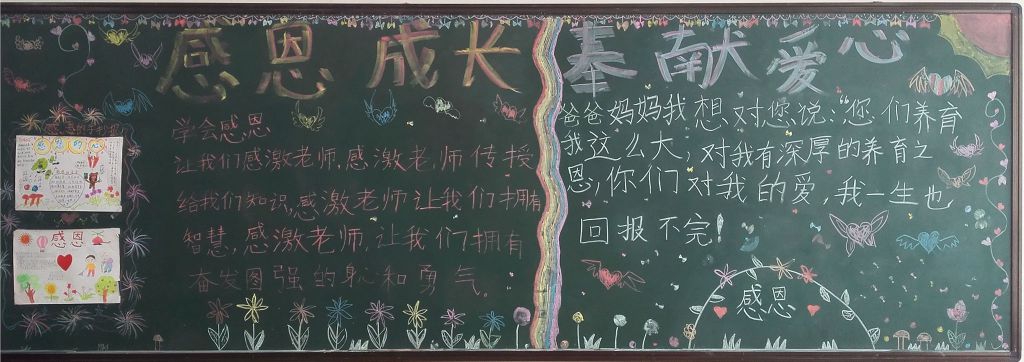 感恩 成长 奉献爱心
学会感恩
让我们感激老师,感激老师传授
给我们知识,感激老师让我们拥有
智慧,感激老师,让我们拥有
奋发图强的身心和勇气。
爸爸妈妈我想对您说:“您们养育
我这么大,对我有深厚的养育之
恩,你们对我的爱,我一生也
回报不完!
感恩
感恩的心
感恩